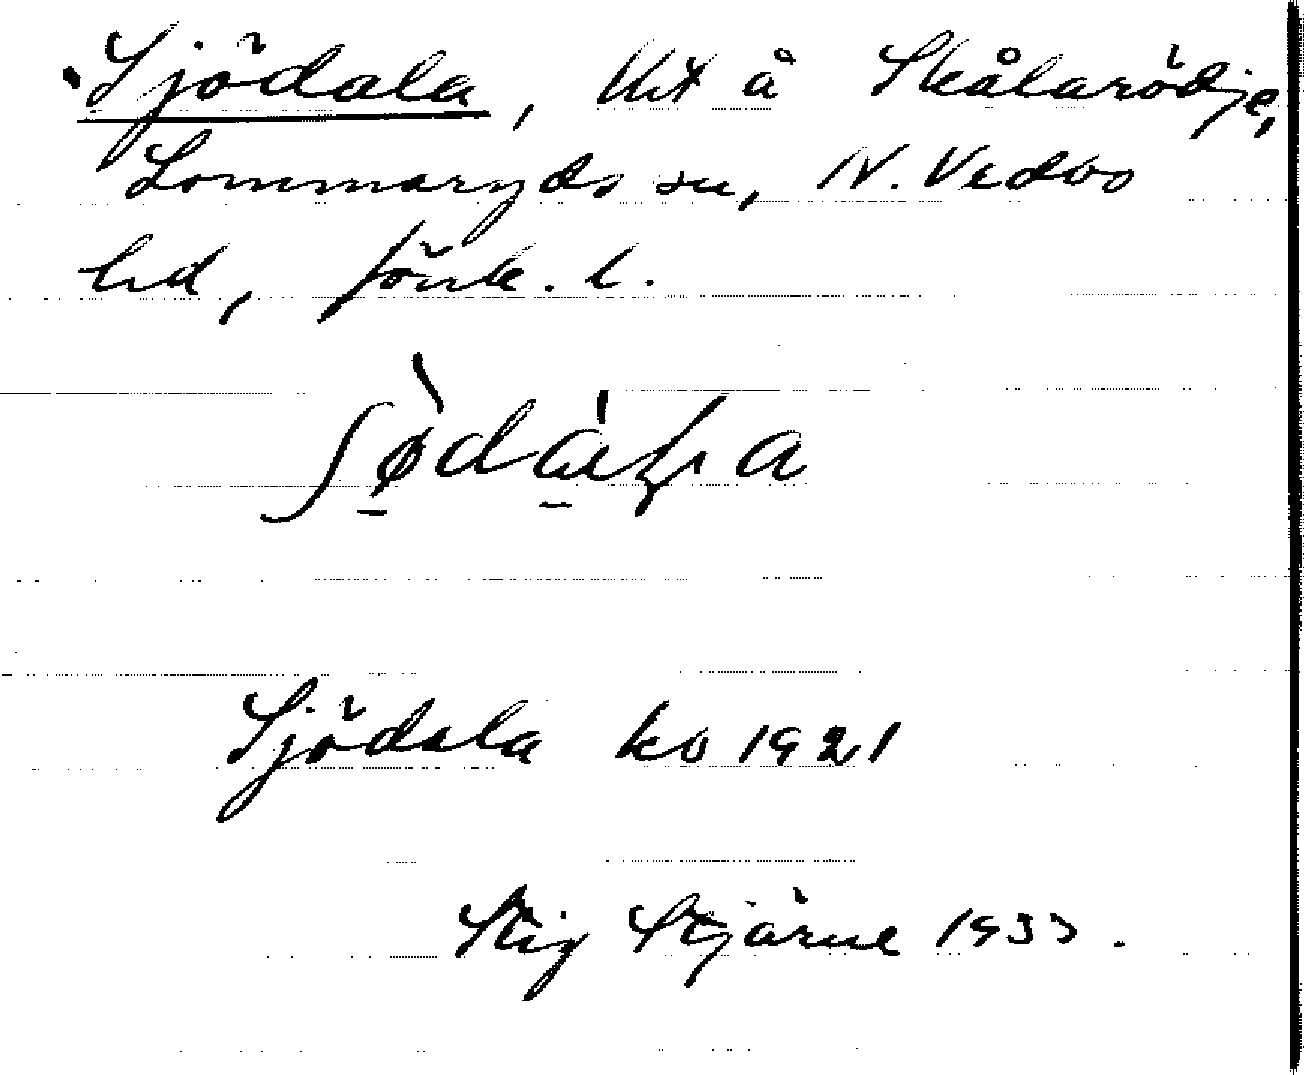 Sjödala, Ut å Skålarödje,
Lommaryds sn, N. Vedbo
hd, Jönk. l.
Sjödala ko 1921
Stig Stjärne 1933.